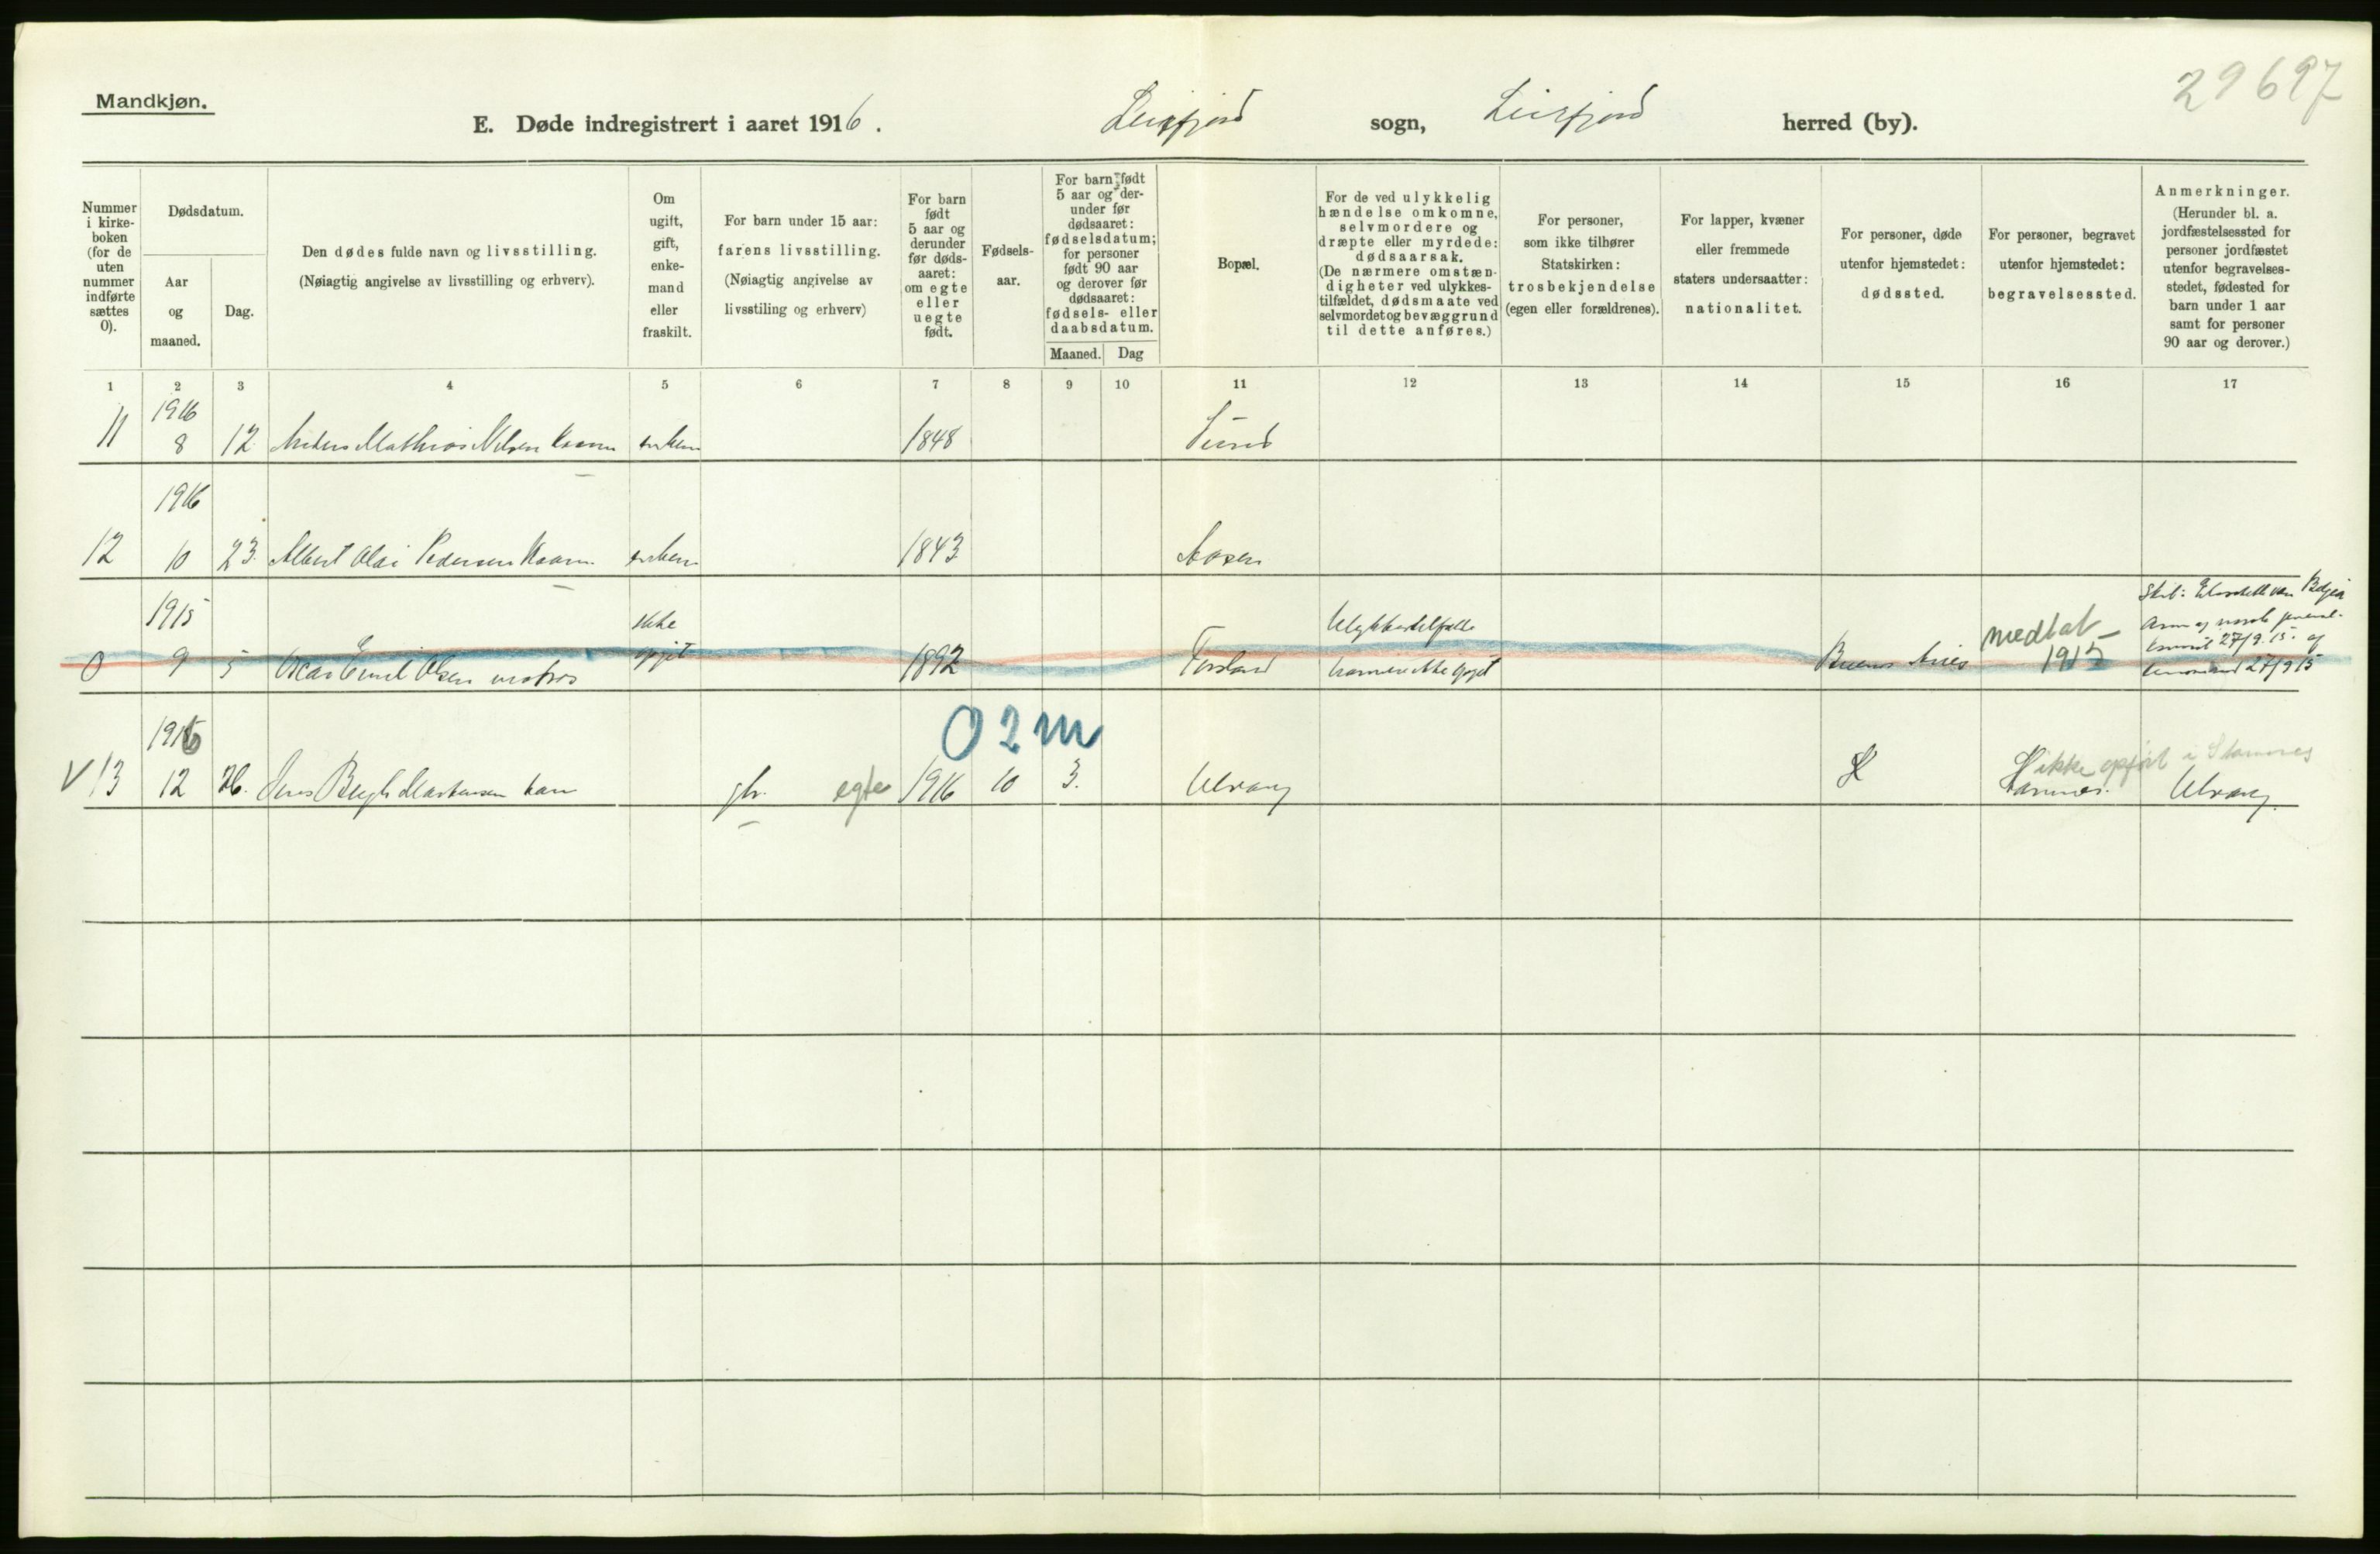 29697
Mandkjøn.
E. Døde indregistrert i aaret 1916. Leirfjord sogn, Leirfjord herred (by).
Nummer
i kirke-
boken
(for de
uten
nummer
indførte
sættes
0).
Dødsdatum.
Aar
og
maaned.
Dag.
Den dødes fulde navn og livsstilling.
(Nøiagtig angivelse av livsstilling og erhverv).
Om
ugift,
gift,
enke-
mand
eller
fraskilt.
For barn under 15 aar:
farens livsstilling.
(Nøiagtig angivelse av
livsstiling og erhverv)
For barn
født
5 aar og
derunder
før døds-
aaret:
om egte
eller
uegte
født.
Fødsels-
aar.
For barn født
5 aar og der-
under før
dødsaaret:
fødselsdatum;
for personer
født 90 aar
og derover før
dødsaaret:
fødsels- eller
daabsdatum.
Maaned. Dag
Bopæl.
For de ved ulykkelig
hændelse omkomne,
selvmordere og
dræpte eller myrdede:
dødsaarsak.
(De nærmere omstæn-
digheter ved ulykkes-
tilfældet, dødsmaate ved
selvmordet og bevæggrund
til dette anføres.)
For personer,
som ikke tilhører
Statskirken:
trosbekjendelse
(egen eller forældrenes).
For lapper, kvæner
eller fremmede
staters undersaatter:
nationalitet.
For personer, døde
utenfor hjemstedet:
dødssted.
For personer, begravet
utenfor hjemstedet:
begravelsessted.
Anmerkninger.
(Herunder bl. a.
jordfæstelsessted for
personer jordfæstet
utenfor begravelses-
stedet, fødested for
barn under 1 aar
samt for personer
90 aar og derover.)
1 2 3 4 5 6 7 8 9 10 11 12 13 14 15 16 17
1916
11 8 12 Anders Mathias Nilsen 1848
1916
12 10 23. Albert Olai Pedersen 1843 Aasen
1915 ikke
0 9 5 Oscar Emil Olsen matros opgit 1892 Forsland
Ulykkestilfælde
nærmere ikke opgit
Buenos Aires
medtat
1915
27/9.15. og
27/9 15
02m
1916
V 13 12 26. Jens Bergh Martensen barn gbr. egte 1916 10 3. Ulvang
ikke opført i Stamnes
Stamnes. Ulvang.